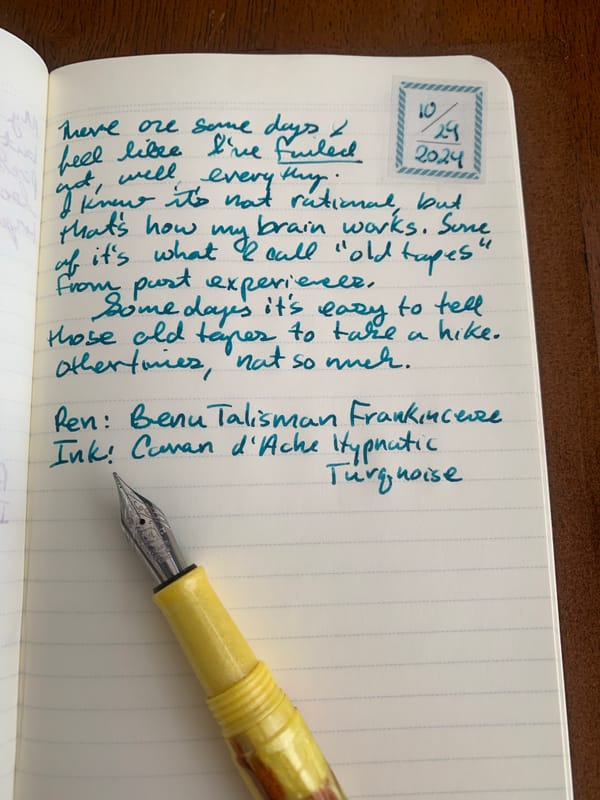 10/29
2024
There are some days I
feel like I've failed
at, well, everything.
I know it's not rational, but
that's how my brain works. Some
of it's what I call "old tapes"
from past experiences.
Some days it's easy to tell
those old tapes to take a hike.
Other times, not so much.
Pen: Benu Talisman Frankincense
Ink: Caran d'Ache Hypnotic
Turquoise